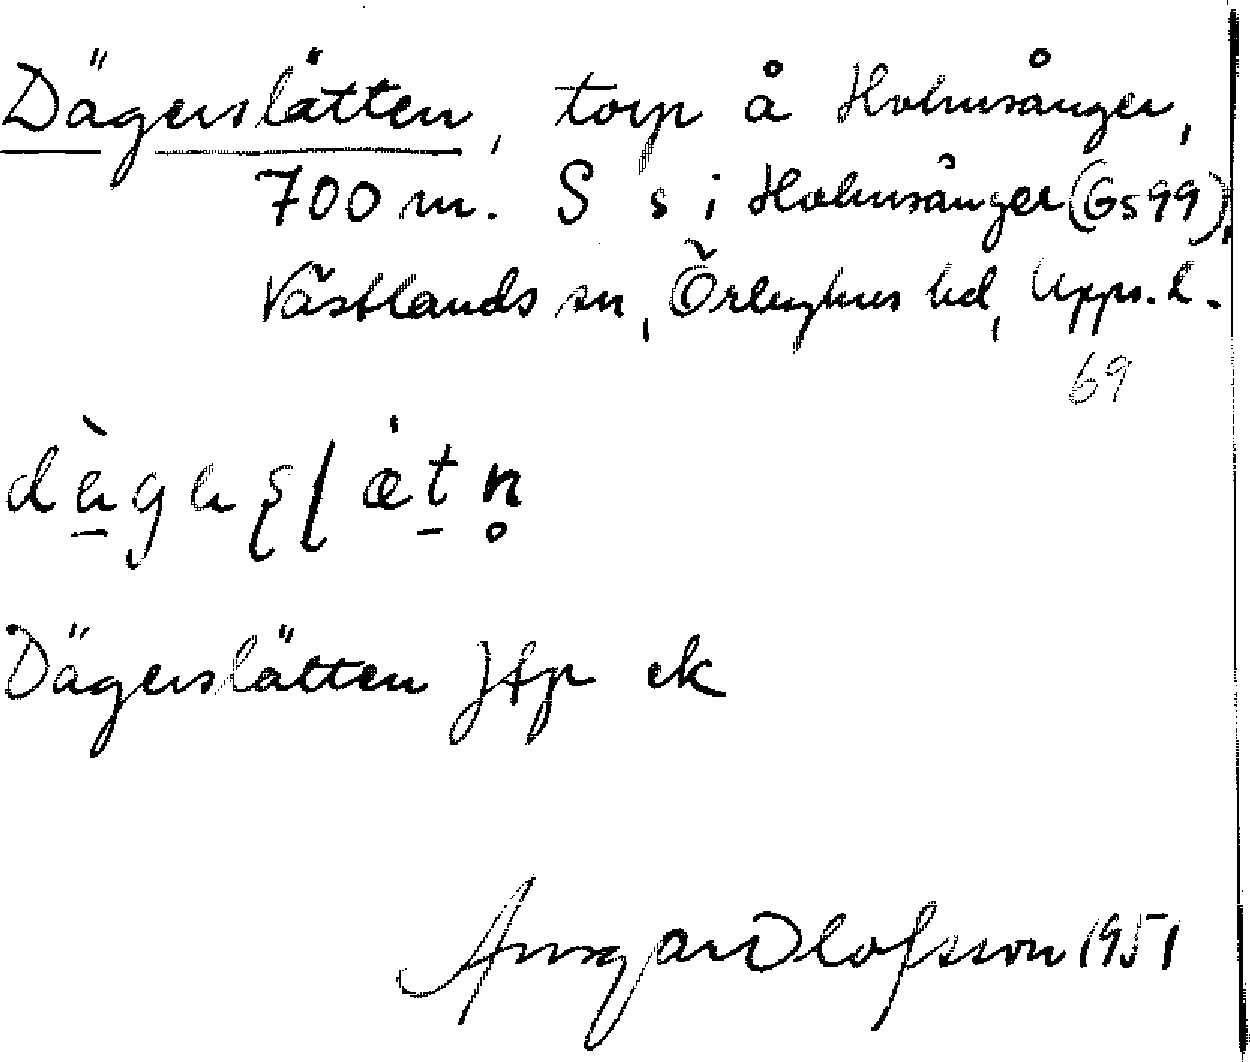 Dägerslätten, torp å Holmsånger,
700 m. S s i Holmsånger (Gs 99),
Västlands sn, Örbyhus hd, Upps. l.
69
Dägerslätten Jfp ek
Ansgar Olofsson 1951